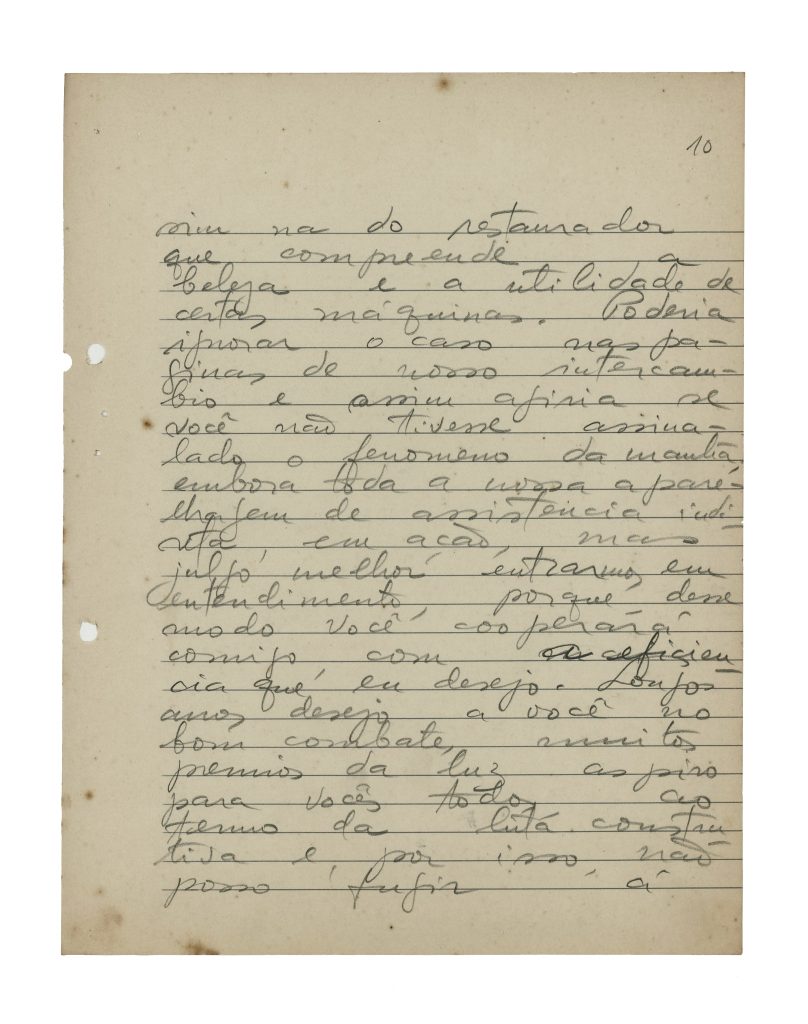 10
sim na do restaurador
que compreende a
beleza e a utilidade de
certas máquinas. Poderia
ignorar o caso nas pa-
ginas de nosso intercam-
bio e assim agiria se
você não tivesse assina-
lado o fenomeno da manhã,
embora toda a nossa apare-
lhagem de assistencia indi
reta, em acão, mas
julgo melhor entrarmos em
entendimento, porque, desse
modo você cooperará
comigo com a eficien
cia que eu desejo. Longos
anos desejo a você no
bom combate, muitos
premios da luz aspiro
para vocês todos, ao
termo da luta constru
tiva e, por isso, não
posso fugir á